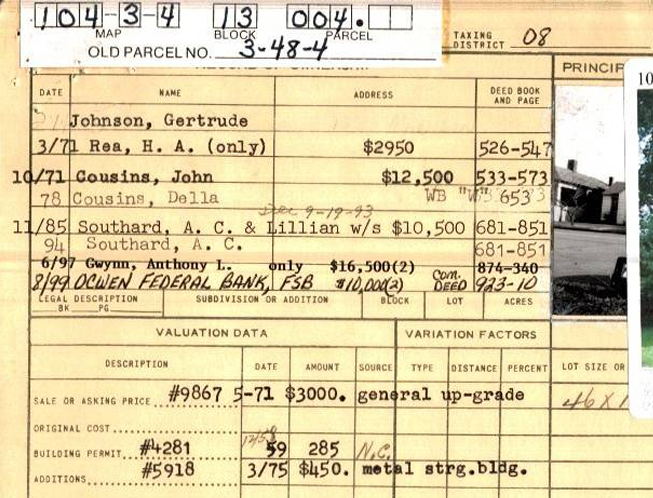 104-3-4 13 004.
MAP BLOCK PARCEL
OLD PARCEL NO. 3-48-4
TAXING DISTRICT 08
PRINCIP
DATE NAME ADDRESS DEED BOOK AND PAGE
Johnson, Gertrude
3/71 Rea, H. A. (only) $2950 526-547
10/71 Cousins, John $12,500 533-573
78 Cousins, Della WB "W" 653
Dec 9-19-93
11/85 Southard, A. C. & Lillian w/s $10,500 681-851
94 Southard, A. C. 681-851
6/97 Gwynn, Anthony L. only $16,500(2) 874-340
8/99 OCWEN FEDERAL BANK, FSB $10,000(2) Com. DEED 923-10
LEGAL DESCRIPTION SUBDIVISION OR ADDITION BLOCK LOT ACRES
BK PG
VALUATION DATA VARIATION FACTORS
DESCRIPTION DATE AMOUNT SOURCE TYPE DISTANCE PERCENT LOT SIZE OR
SALE OR ASKING PRICE #9867 5-71 $3000. general up-grade
46 X 1
ORIGINAL COST
BUILDING PERMIT #4281 12/58 59 285 N.C.
ADDITIONS #5918 3/75 $450. metal strg.bldg.
10